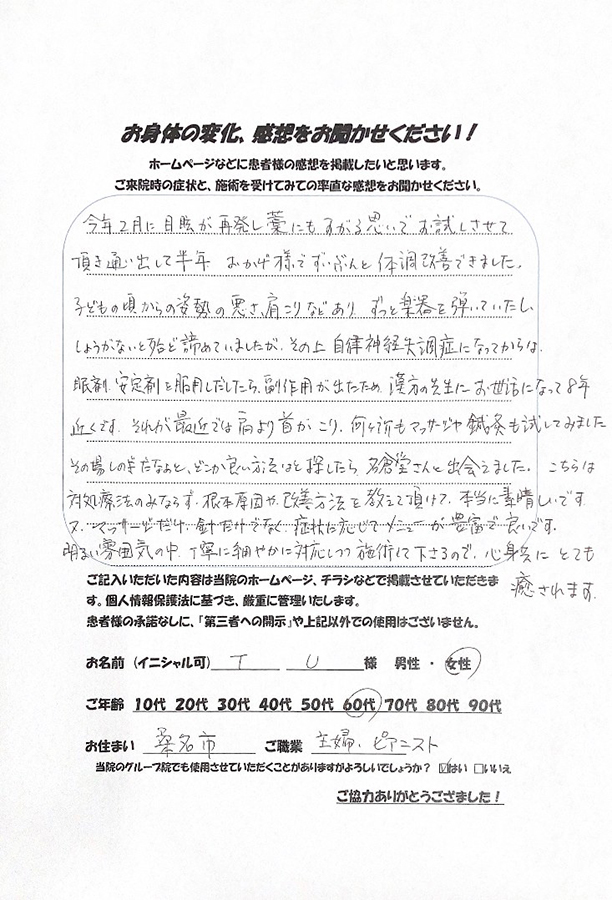 お身体の変化、感想をお聞かせください！
ホームページなどに患者様の感想を掲載したいと思います。
ご来院時の症状と、施術を受けてみての率直な感想をお聞かせください。
今年2月に目眩が再発し藁にもすがる思いでお試しさせて
頂き通い出して半年 おかげ様でずいぶんと体調改善できました。
子どもの頃からの姿勢の悪さ、肩こりなどあり ずっと楽器を弾いていたし、
しょうがないと殆ど諦めていましたが、その上自律神経失調症になってからは、
眠剤、安定剤を服用しだしたら、副作用が出たため 漢方の先生にお世話になって8年
近くです。それが最近では肩より首がこり、何ヶ所もマッサージや鍼灸も試してみました
その場しのぎだなぁと、どこか良い方法はと探したら 名倉堂さんと出会えました。こちらは
対処療法のみならず、根本原因や、改善方法を教えて頂けて、本当に素晴しいです。
又、マッサージだけ、針だけでなく、症状に応じてメニューが豊富で良いです。
明るい雰囲気の中、丁寧に細やかに対応しつつ施術して下さるので、心身共に とても
癒されます。
ご記入いただいた内容は当院のホームページ、チラシなどで掲載させていただきま
す。個人情報保護法に基づき、厳重に管理いたします。
患者様の承諾なしに、「第三者への開示」や上記以外での使用はございません。
お名前 (イニシャル可) T U 様 男性 ・ 女性
ご年齢 10代 20代 30代 40代 50代 60代 70代 80代 90代
お住まい 桑名市 ご職業 主婦、ピアニスト
当院のグループ院でも使用させていただくことがありますがよろしいでしょうか？ ☑はい □いいえ
ご協力ありがとうござました！